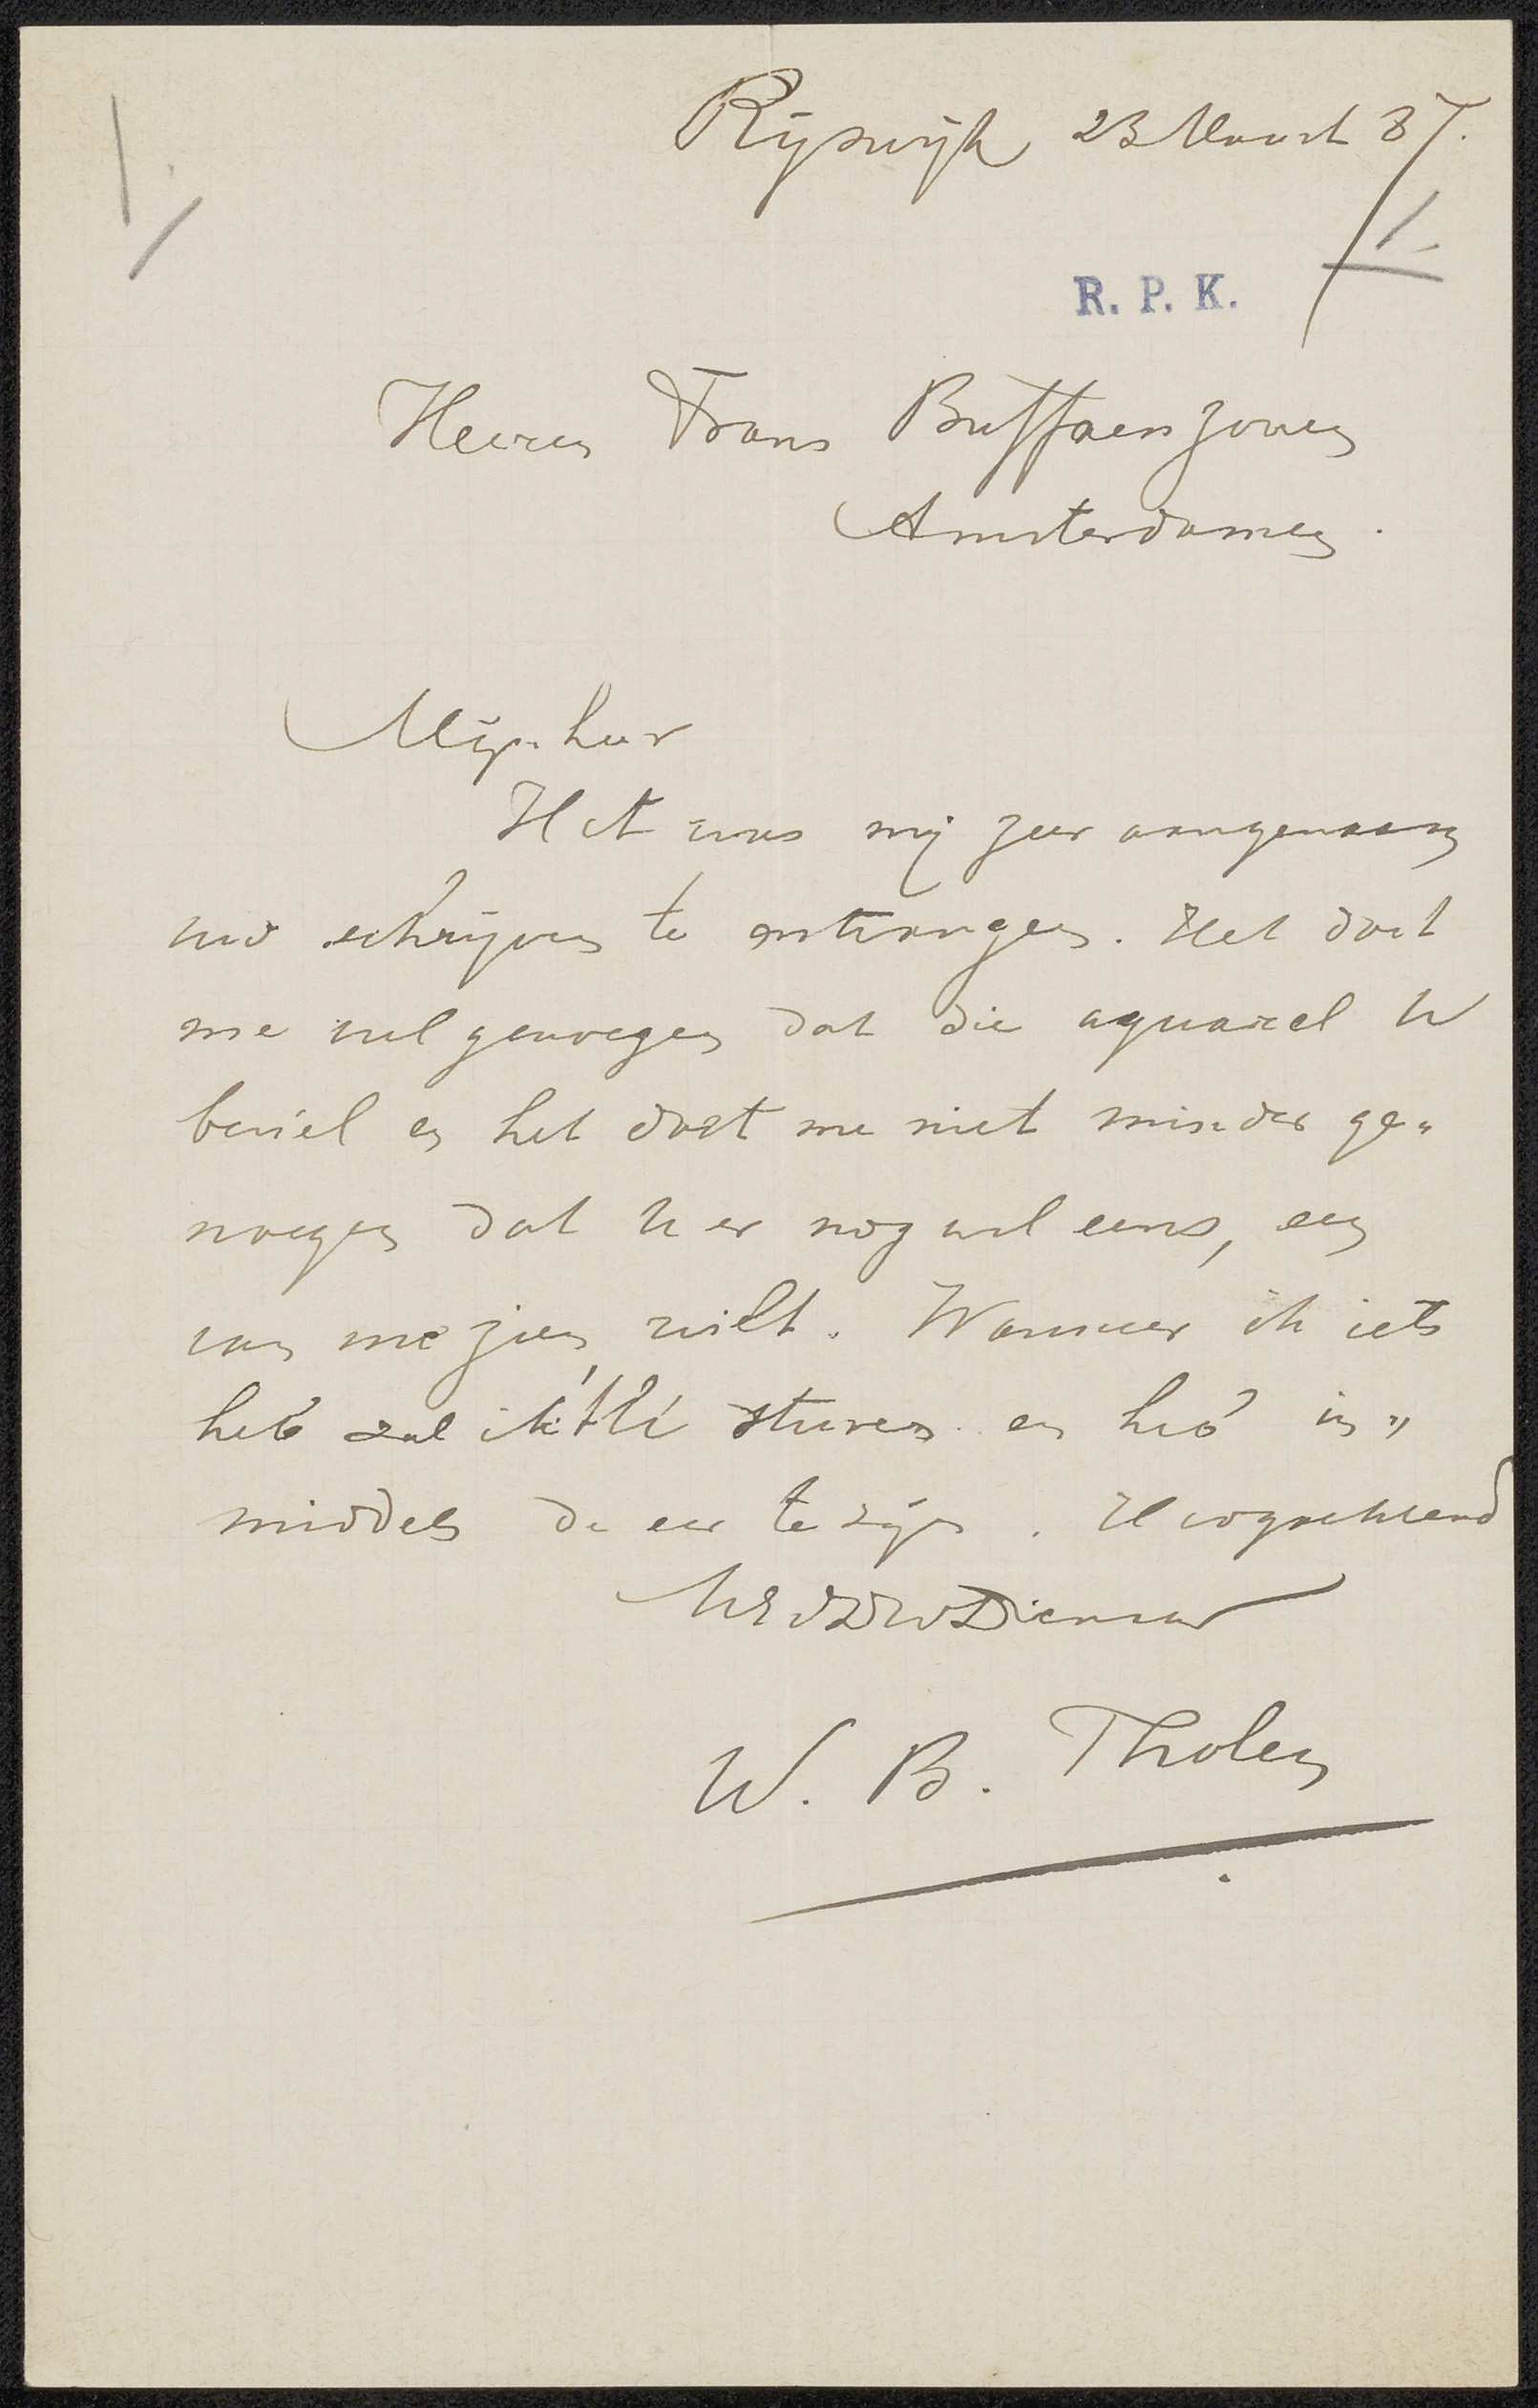 Rijswijk 23 Maart 87.
R. P. K.
Heeren Frans Buffa en zonen
Amsterdam
Mijnheer
Het was mij zeer aangenaam
uw schrijven te ontvangen. Het doet
me veel genoegen dat die aquarel U
beviel en het doet me niet minder ge„
noegen dat U er nog wel eens, een
van me zien wilt. Wanneer ik iets
heb zal ik 't U sturen en heb in„
middels de eer te zijn. Hoogachtend
UEdDwDienaar
W. B. Tholen